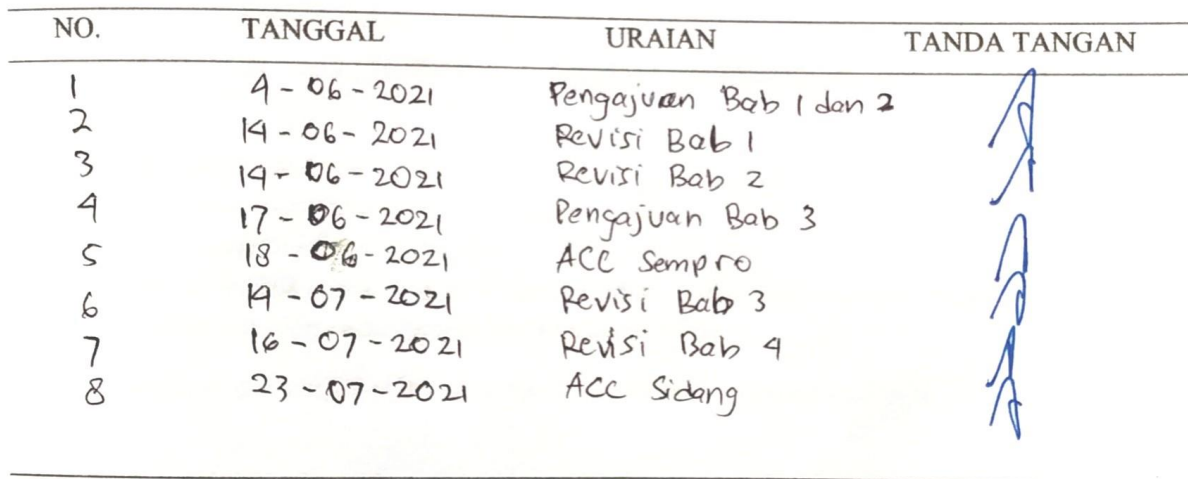 NO. TANGGAL URAIAN TANDA TANGAN
1 4-06-2021 Pengajuan Bab 1 dan 2
2 14-06-2021 Revisi Bab 1
3 14-06-2021 Revisi Bab 2
4 17-06-2021 Pengajuan Bab 3
5 18-06-2021 ACC Sempro
6 14-07-2021 Revisi Bab 3
7 16-07-2021 Revisi Bab 4
8 23-07-2021 ACC Sidang